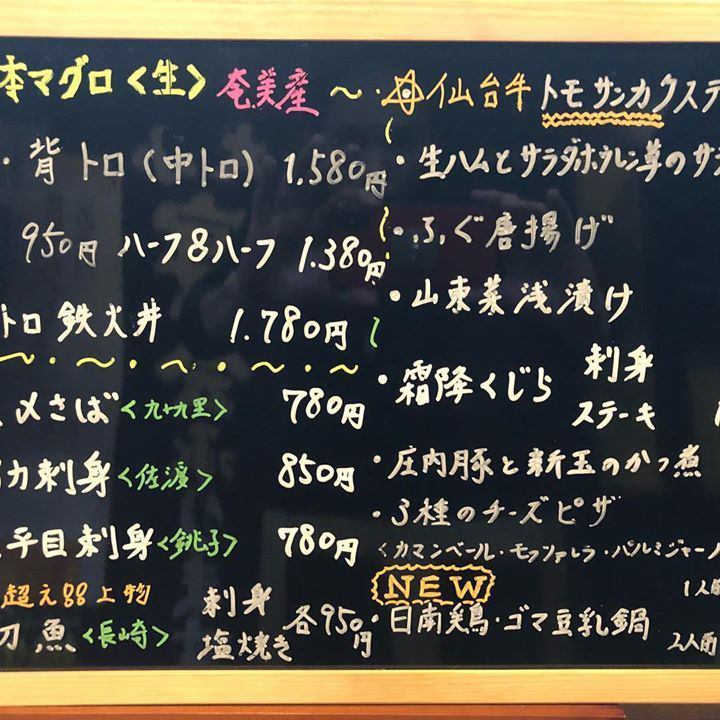 本マグロ〈生〉奄美産
・背トロ(中トロ) 1.580円
950円 ハーフ&ハーフ 1.380円
トロ鉄火丼 1.780円
〆さば<九十九里> 780円
刺身<佐渡> 850円
平目刺身<銚子> 780円
超え88上物
刀魚<長崎> 刺身 塩焼き 各950円
仙台牛トモサンカクステ
・生ハムとサラダホウレン草のサ
・ふぐ唐揚げ
・山東菜浅漬け
・霜降くじら 刺身
ステーキ
・庄内豚と新玉のかつ煮
・3種のチーズピザ
<カマンベール・モッツァレラ・パルミジャーノ
NEW
1人前
・日南鶏・ゴマ豆乳鍋
2人前